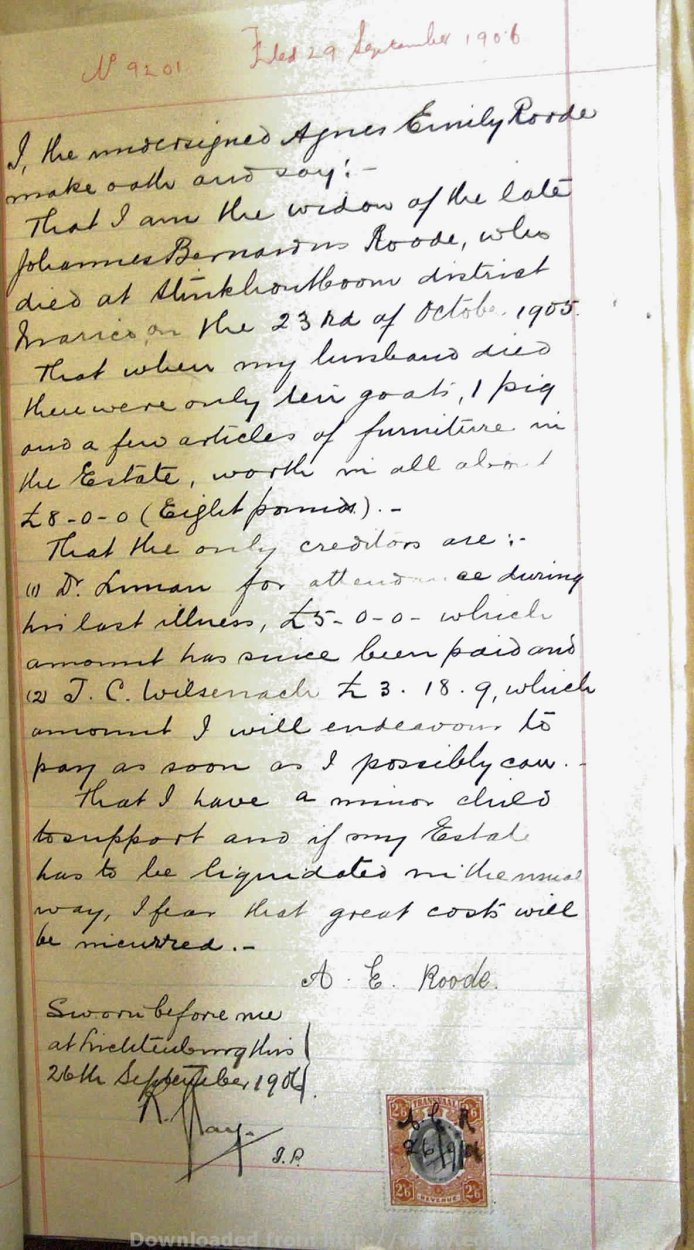 Nº 9201 Filed 29 September 1906
I, the undersigned Agnes Emily Roode
make oath and say:-
That I am the widow of the late
Johannes Bernardus Roode, who
died at Stinkhoutboom district
Marico, on the 23rd of October 1905.
That when my husband died
there were only ten goats, 1 pig
and a few articles of furniture in
the Estate, worth in all about
£8-0-0 (Eight pounds).-
That the only creditors are:-
(1) Dr. for attendance during
his last illness, £5-0-0- which
amount has since been paid and
(2) J. C. Wilsenach £3.18.9, which
amount I will endeavour to
pay as soon as I possibly can.-
That I have a minor child
to support and if my Estate
has to be liquidated in the usual
way, I fear that great costs will
be incurred.-
A. E. Roode.
Sworn before me
at Lichtenburg this
26th September 1906.
R. Way.
J.P.
TRANSVAAL
2/6 2/6
A E R
26/9/06
2/6 REVENUE 2/6
Downloaded from http://www.